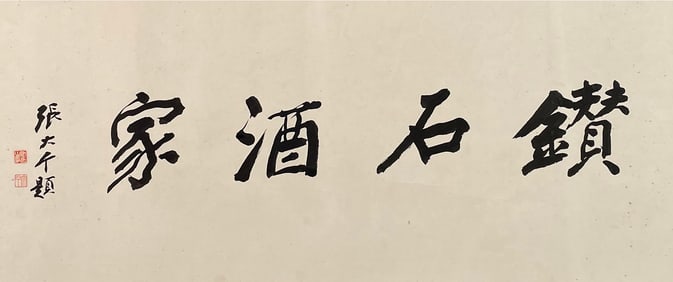 鑽石酒家
張大千題